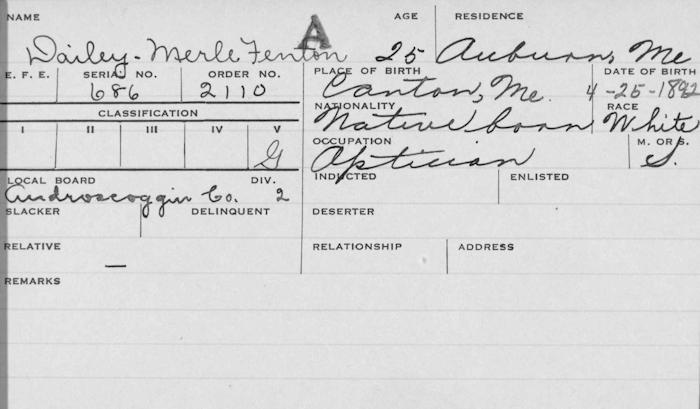 NAME AGE RESIDENCE
A
Dailey - Merle Fenton 25 Auburn, Me
E. F. E. SERIAL NO. ORDER NO. PLACE OF BIRTH DATE OF BIRTH
686 2110 Canton, Me. 4-25-1892
CLASSIFICATION NATIONALITY RACE
I II III IV V Native born White
OCCUPATION M. OR S.
G Optician S.
LOCAL BOARD DIV. INDUCTED ENLISTED
Androscoggin Co. 2
SLACKER DELINQUENT DESERTER
RELATIVE RELATIONSHIP ADDRESS
—
REMARKS